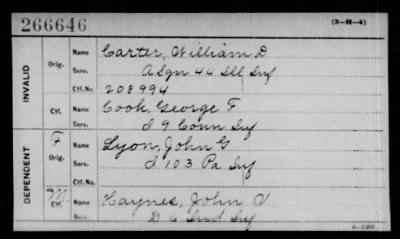 266646
(3-H-4)
INVALID
Orig.
Name
Carter, William D
Serv.
A Sgn 44 Ill Inf
Ctf. No.
208994
Ctf.
Name
Cook, George F
Serv.
I 9 Conn Inf
DEPENDENT
F
Orig.
Name
Lyon, John G
Serv.
I 103 Pa Inf
Ctf. No.
Ctf.
Name
Haynes, John V
Serv.
D 6 Ind Inf